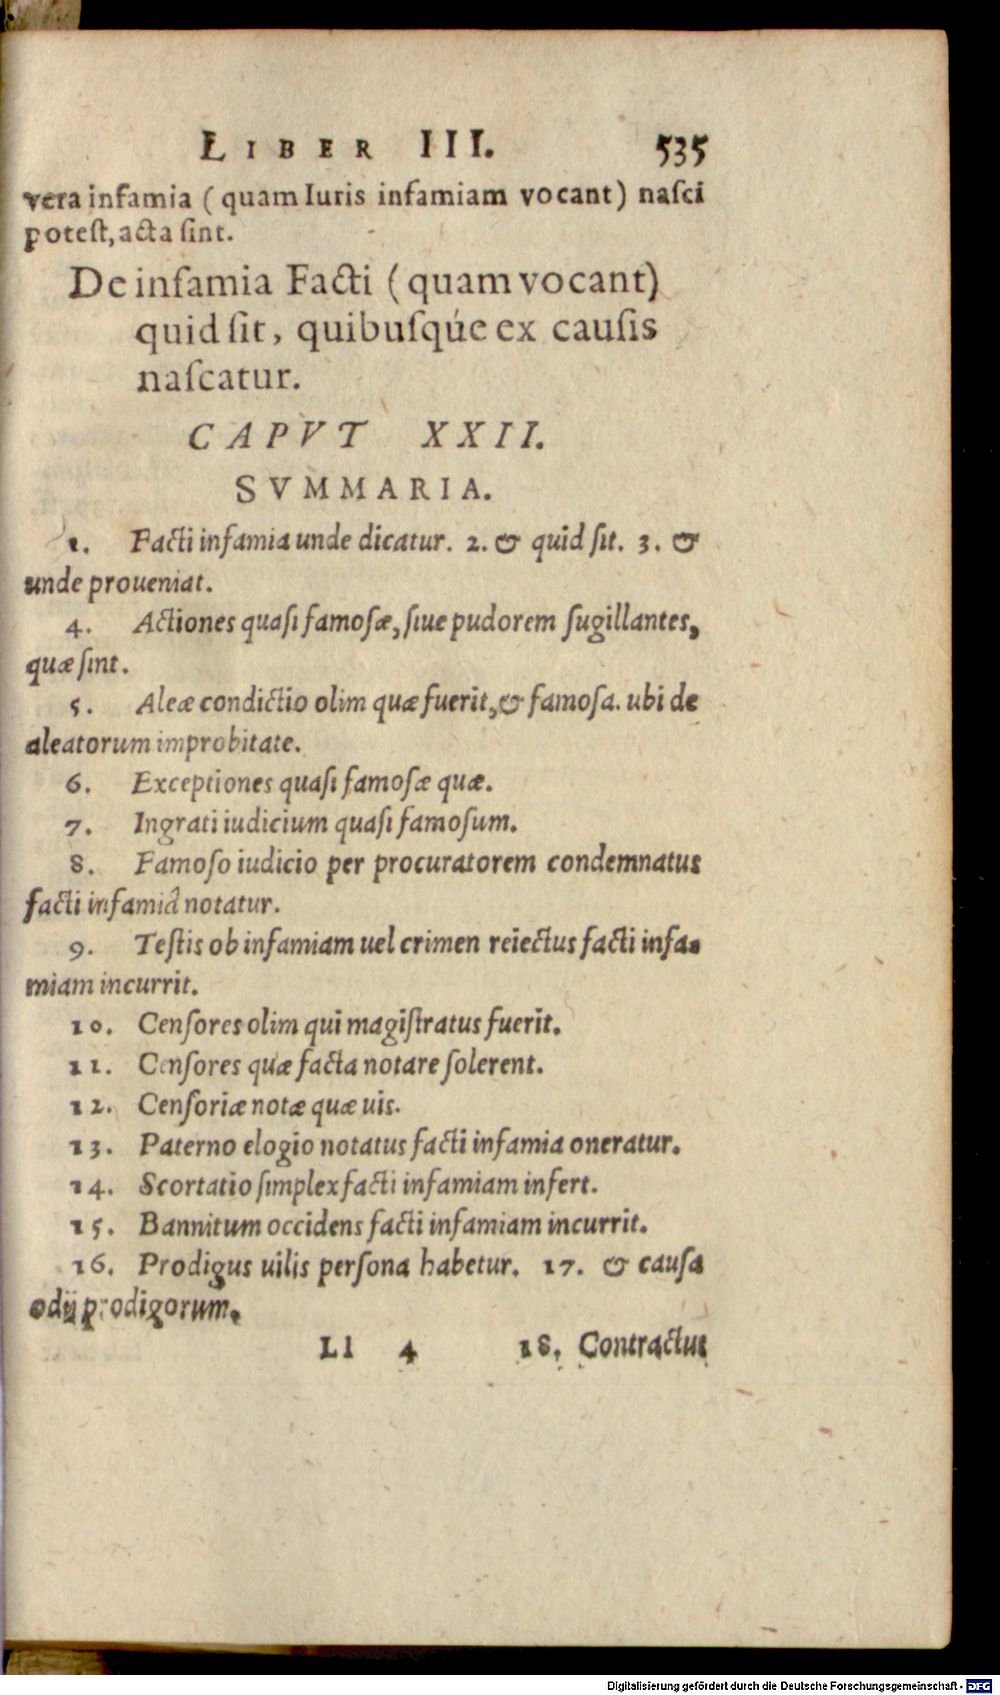 LIBER III. 535
vera infamia (quam Iuris infamiam vocant) nasci
potest, acta sint.
De infamia Facti (quam vocant)
quid sit, quibusqúe ex causis
nascatur.
CAPVT XXII.
SVMMARIA.
1. Facti infamia unde dicatur. 2. & quid sit. 3. &
unde proueniat.
4. Actiones quasi famosæ, siue pudorem sugillantes,
quæ sint.
5. Aleæ condictio olim quæ fuerit, & famosa. ubi de
aleatorum improbitate.
6. Exceptiones quasi famosæ quæ.
7. Ingrati iudicium quasi famosum.
8. Famoso iudicio per procuratorem condemnatus
facti infamiâ notatur.
9. Testis ob infamiam uel crimen reiectus facti infa-
miam incurrit.
10. Censores olim qui magistratus fuerit.
11. Censores quæ facta notare solerent.
12. Censoriæ notæ quæ uis.
13. Paterno elogio notatus facti infamia oneratur.
14. Scortatio simplex facti infamiam infert.
15. Bannitum occidens facti infamiam incurrit.
16. Prodigus uilis persona habetur. 17. & causa
odij prodigorum.
Ll 4 18. Contractus
Digitalisierung gefördert durch die Deutsche Forschungsgemeinschaft - DFG